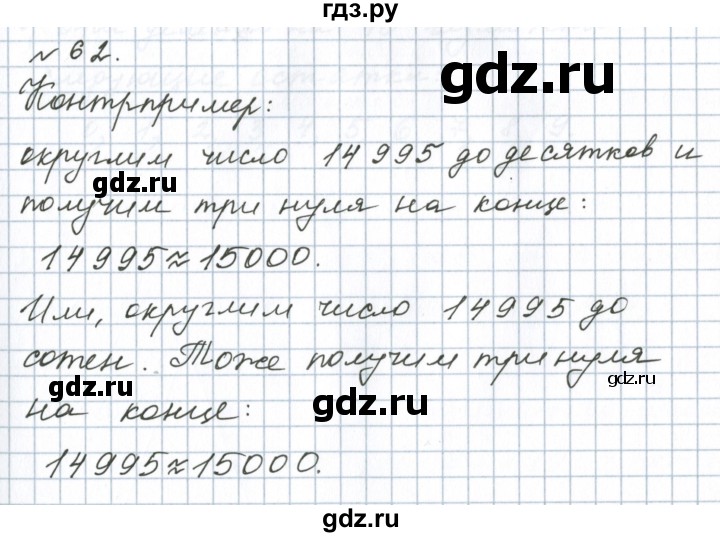 гдз.ру
№ 62.
gdz.ru
Контрпример:
округлим число 14 995 до десятков и
gdz.ru
получим три нуля на конце:
gdz.ru
14 995 ≈ 15 000.
Или, округлим число 14 995 до
сотен. Тоже получим три нуля
gdz.ru
на конце:
gdz.ru
14 995 ≈ 15 000.
gdz.ru
gdz.ru